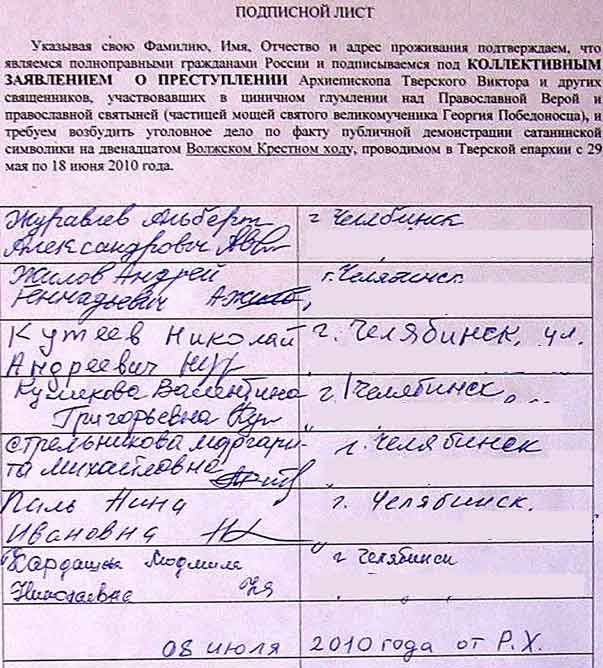 ПОДПИСНОЙ ЛИСТ
Указывая свою Фамилию, Имя, Отчество и адрес проживания подтверждаем, что
являемся полноправными гражданами России и подписываемся под КОЛЛЕКТИВНЫМ
ЗАЯВЛЕНИЕМ О ПРЕСТУПЛЕНИИ Архиепископа Тверского Виктора и других
священников, участвовавших в циничном глумлении над Православной Верой и
православной святыней (частицей мощей святого великомученика Георгия Победоносца), и
требуем возбудить уголовное дело по факту публичной демонстрации сатанинской
символики на двенадцатом Волжском Крестном ходу, проводимом в Тверской епархии с 29
мая по 18 июня 2010 года.
Журавлев Альберт г Челбинск
Александрович
Жилов Андрей г. Челябинск
Геннадьевич
Кутеев Николай г. Челябинск, ул.
Андреевич
Валентина г. Челябинск,
Григорьевна
Стрельникова Маргари- г. Челябинск
та Михайловна
Паль Нина г. Челябинск.
Ивановна
Людмила г Челябинск
Николаевна
08 июля 2010 года от Р.Х.